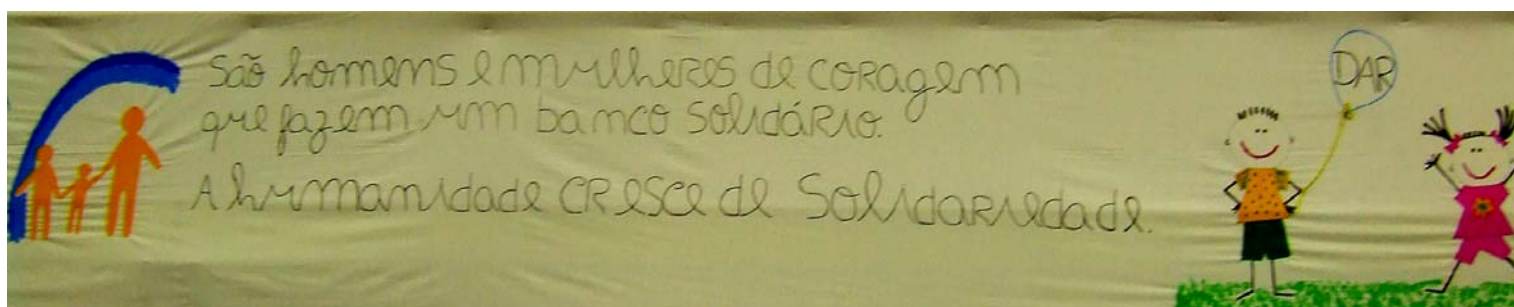 São homens e mulheres de coragem
que fazem um banco solidário.
A humanidade cresce de Solidariedade.
DAR